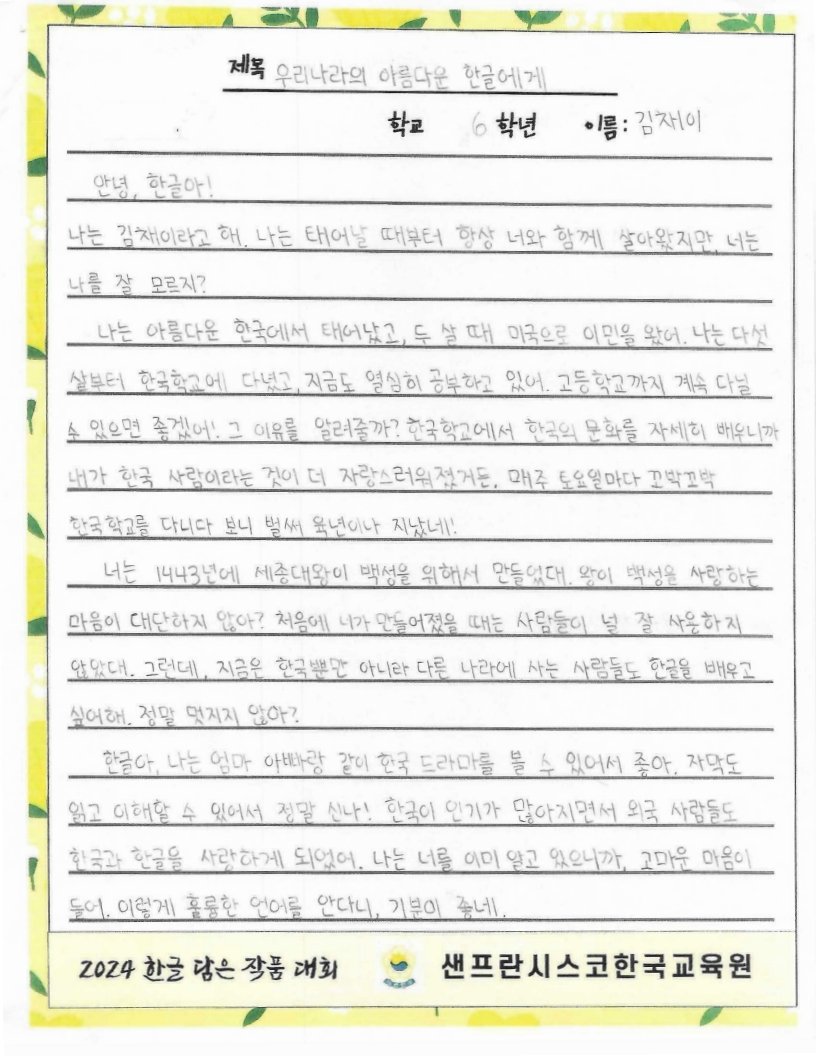 제목 우리나라의 아름다운 한글에게
학교 6 학년 이름: 김채이
안녕, 한글아!
나는 김채이라고 해. 나는 태어날 때부터 항상 너와 함께 살아왔지만, 너는
나를 잘 모르지?
나는 아름다운 한국에서 태어났고, 두 살 때 미국으로 이민을 왔어. 나는 다섯
살부터 한국학교에 다녔고, 지금도 열심히 공부하고 있어. 고등학교까지 계속 다닐
수 있으면 좋겠어! 그 이유를 알려줄까? 한국학교에서 한국의 문화를 자세히 배우니까
내가 한국 사람이라는 것이 더 자랑스러워졌거든. 매주 토요일마다 꼬박꼬박
한국학교를 다니다 보니 벌써 육년이나 지났네!
너는 1443년에 세종대왕이 백성을 위해서 만들었대. 왕이 백성을 사랑하는
마음이 대단하지 않아? 처음에 너가 만들어졌을 때는 사람들이 널 잘 사용하지
않았대. 그런데, 지금은 한국뿐만 아니라 다른 나라에 사는 사람들도 한글을 배우고
싶어해. 정말 멋지지 않아?
한글아, 나는 엄마 아빠랑 같이 한국 드라마를 볼 수 있어서 좋아. 자막도
읽고 이해할 수 있어서 정말 신나! 한국이 인기가 많아지면서 외국 사람들도
한국과 한글을 사랑하게 되었어. 나는 너를 이미 알고 있으니까, 고마운 마음이
들어. 이렇게 훌륭한 언어를 안다니, 기분이 좋네.
2024 한글 담은 작품 대회 샌프란시스코한국교육원